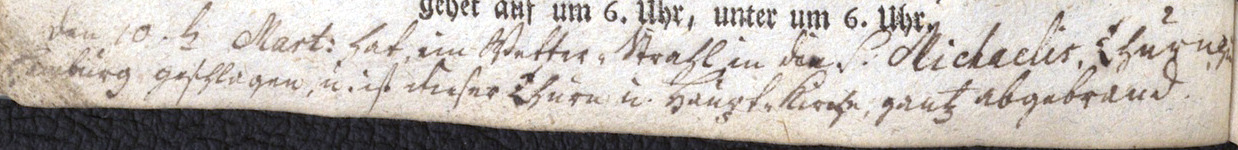 gehet auf um 6. Uhr, unter um 6. Uhr.
den 10. h Mart: hat ein Wetter-Strahl in den S. Michaelis. Thurn
burg geschlagen, u. ist dieser Thurn u. Haupt-Kirche, gantz abgebrand.